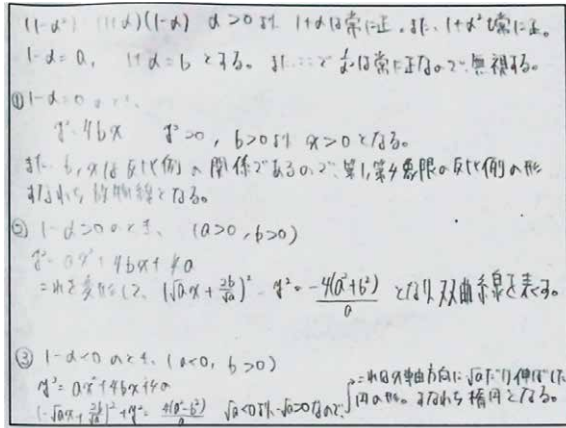 (1-α²) (1+α)(1-α) α>0より 1+αは常に正。また、1+α²も常に正。
1-α=a, 1+α=b とする。また は常に正なので、無視する。
① 1-α=0のとき、
y²=4bx y²>0, b>0より x>0となる。
また、b, xは反比例の関係であるので、第1,第4象限の反比例の形
すなわち放物線となる。
② 1-α>0のとき、 (a>0, b>0)
y²=ax²+4bx+4a
これを変形して、(√a x + 2b/√a)² - y² = -4(a²+b²)/a となり、双曲線を表す。
③ 1-α<0のとき、(a<0, b>0)
y²=ax²+4bx+4a
(-√a x + 2b/√a)² + y² = 4(a²-b²)/a √a<0より、-√a>0なので、
これはx軸方向に√aだけ伸ばした
円の形。すなわち楕円となる。